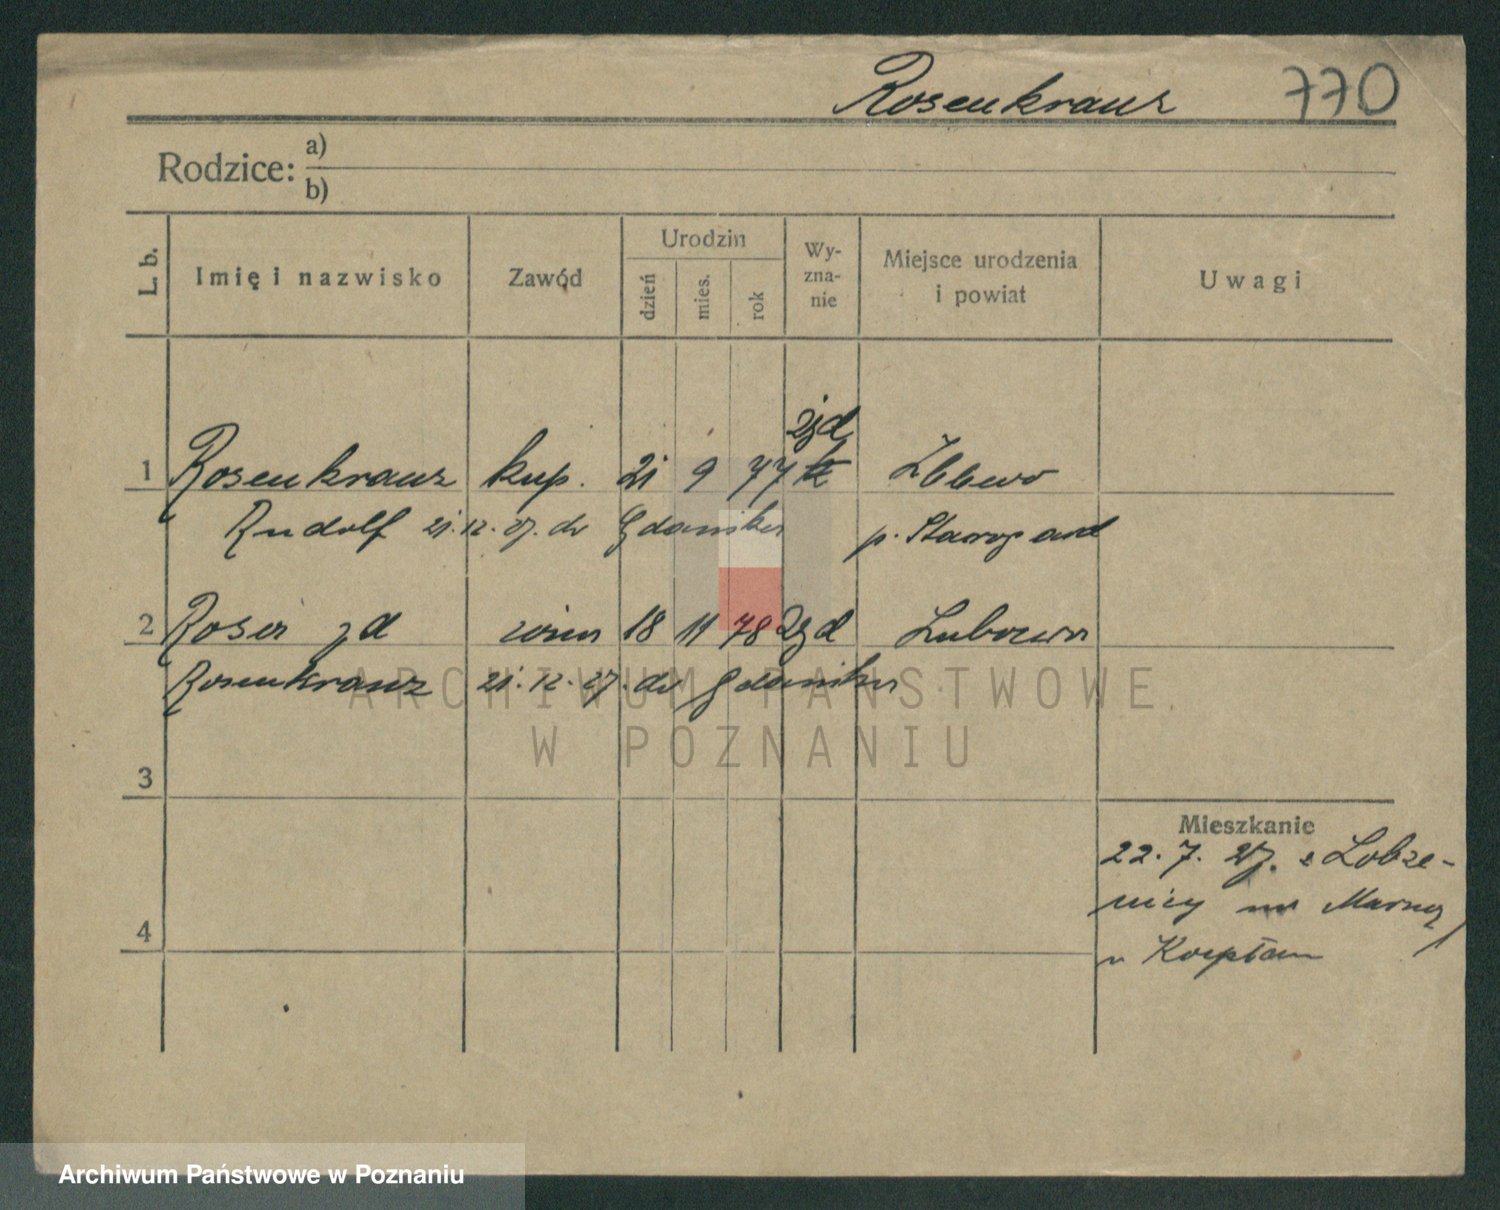 Rosenkranz 770
Rodzice: a)
b)
L. b. Imię i nazwisko Zawód Urodzin dzień mies. rok Wyznanie Miejsce urodzenia i powiat Uwagi
żyd
1 Rosenkranz kup. 21 9 77 Zblewo
Rudolf 21.12.27. do Gdańska p. Starogard
2 Rosa żd żona 18 11 78 żyd
Rosenkranz 21.12.27. do Gdańska
ARCHIWUM PAŃSTWOWE
W POZNANIU
3
Mieszkanie
22. 7. 27. z Łobże-
nicy
4
Archiwum Państwowe w Poznaniu